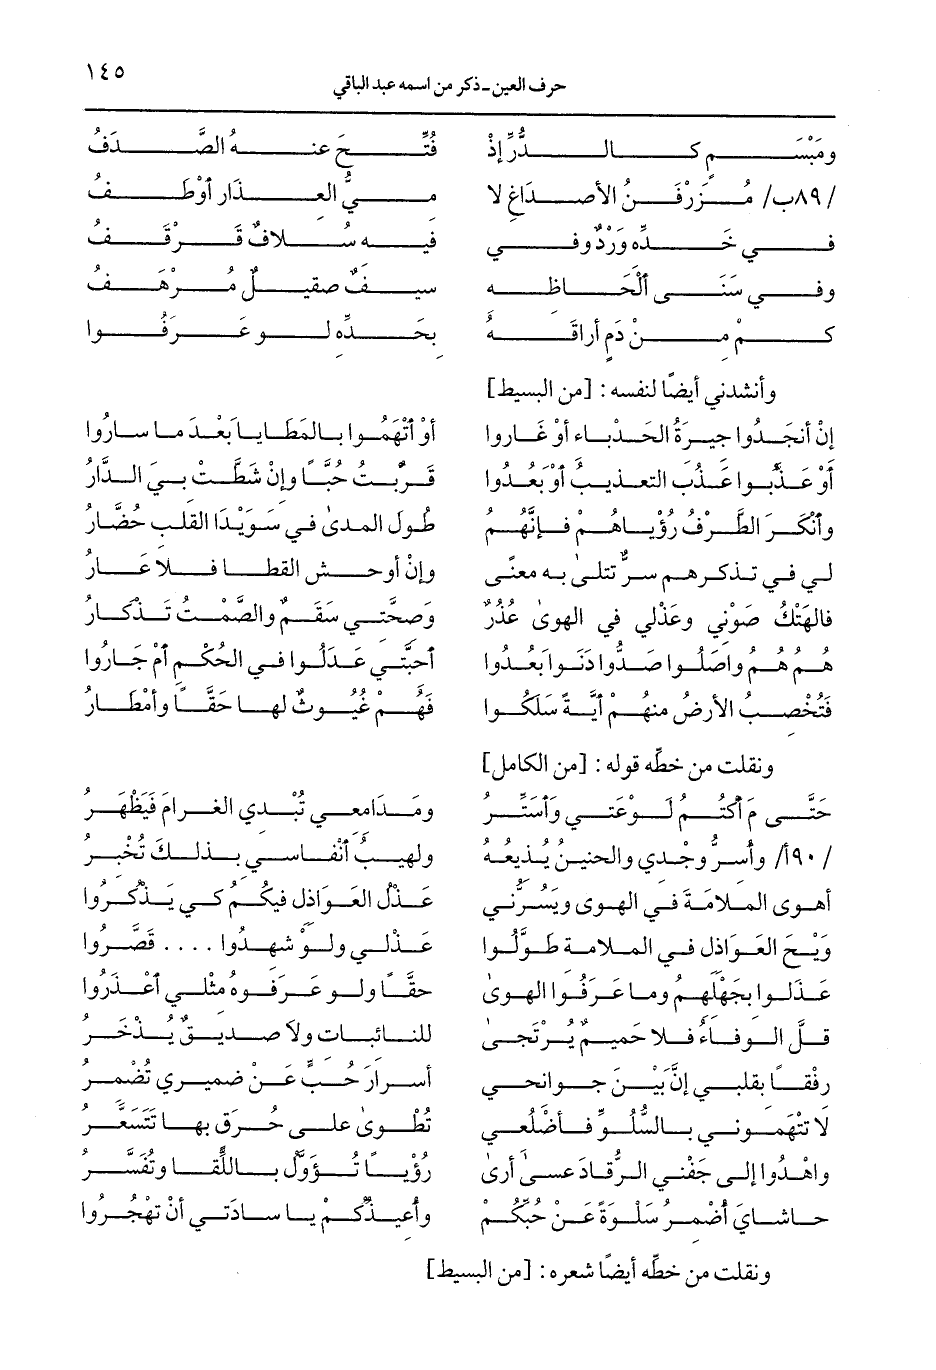 ١٤٥
حرف العين - ذكر من اسمه عبد الباقي
ومَبْسَم كالدُّرِّ إذْ فُتِّحَ عنهُ الصَّدَفُ
/٨٩ب/ مُزَرْفَنُ الأصْدَاغِ لا مِيُّ العِذَارِ أوْطَفُ
في خَدِّه وَرْدٌ وفي فيه سُلافٌ قَرْقَفُ
وفي سَنَى ألْحَاظِه سيفٌ صقيلٌ مُرْهَفُ
كَمْ مِنْ دَمٍ أراقَهُ بِخَدِّه لو عَرَفُوا
وأنشدني أيضًا لنفسه: [من البسيط]
إنْ أنجَدُوا جيرَةُ الحَدْباءِ أوْ غَاروا أوْ أتْهَمُوا بالمَطَايا بَعْدَ ما سارُوا
أوْ عَذَّبوا عَذُبَ التعذيبُ أوْ بَعُدُوا قَرُبْتُ حُبًّا وإن شَطَّتْ بيَ الدَّارُ
وأنْكَرَ الطَّرْفُ رُؤْيَاهُمْ فإنَّهُم طُولَ المدى في سُوَيْدَا القلبِ حضَّارُ
لي في تذكرهم سرٌّ تتلى به معنًى وإن أوحش القطا فلا عارُ
فالهَتْكُ صَوْني وعَذْلي في الهوى عُذُرٌ وَصِحَّتي سَقَمٌ والصَّمْتُ تَذْكارُ
هُمْ هُمُ واصَلُوا صَدُّوا دَنَوا بَعُدُوا أحِبَّتي عَدَلُوا في الحُكْمِ أمْ جَارُوا
فَتُخْصِبُ الأرضُ منهُمْ أيَّةً سَلَكُوا فَهُمْ غُيُوثٌ لها حَقًّا وأمْطارُ
ونقلت من خطّه قوله: [من الكامل]
حَتَّى مَ أكْتُمُ لوْعَتي وأُسَتِّرُ ومَدَامعي تُبْدي الغَرامَ فيَظْهَرُ
/٩٠أ/ وأُسِرُّ وجْدي والحنينُ يُذيعُهُ ولهيبُ أنْفَاسي بذلكَ تُخْبِرُ
أهوى المَلامَةَ في الهوى ويَسُرُّني عَذْلُ العَواذلِ فيكُم كي يَذْكُروا
وَيْحَ العَواذلِ في الملامة طوَّلُوا عَذْلي ولَوْ شَهِدُوا .... قصَّروا
عَذَلُوا بِجَهْلِهُم وما عَرَفُوا الهوى حقًّا ولو عَرَفُوه مثلي أعْذَرُوا
قلَّ الوفاءُ فلا حَميمٌ يُرْتَجى للنائباتِ ولا صديقٌ يُذْخَرُ
رفقًا بقلبي إنَّ بَيْنَ جوانحي أسرارَ حُبٍّ عَنْ ضميري تُضْمَرُ
لا تتْهموني بالسُّلُوِّ فأضلُعي تُطْوى على حُرَقٍ بها تَتَسَعَّرُ
واهْدُوا إلى جَفْني الرُّقادَ عسى أرى رُؤْيًا تُؤَوَّلُ باللِّقا وتُفَسَّرُ
حاشايَ أضْمِرُ سَلْوَةً عَنْ حُبِّكُم وأعيذُكُمْ يا سادَتي أنْ تهْجُروا
ونقلت من خطّه أيضًا شعره: [من البسيط]